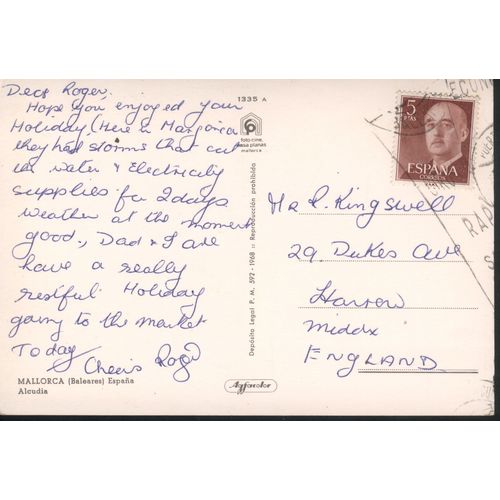 Dear Roger,
Hope you enjoyed your
Holiday (Here in Marjorica
they had storms that cut
water & Electricity
supplies for 2 days
weather at the moment
good., Dad & I are
have a really
restful Holiday
going to the market
Today
Cheers Roger
MALLORCA (Baleares) España
Alcudia
1335 A
foto-cine.
casa planas
mallorca
Depósito Legal P. M. 592 - 1968 :: Reproducción prohibida
Agfacolor
5
PTAS
ESPAÑA
CORREOS
Mr R. Kingswell
29 Dukes Ave
Harrow
Middx
ENGLAND